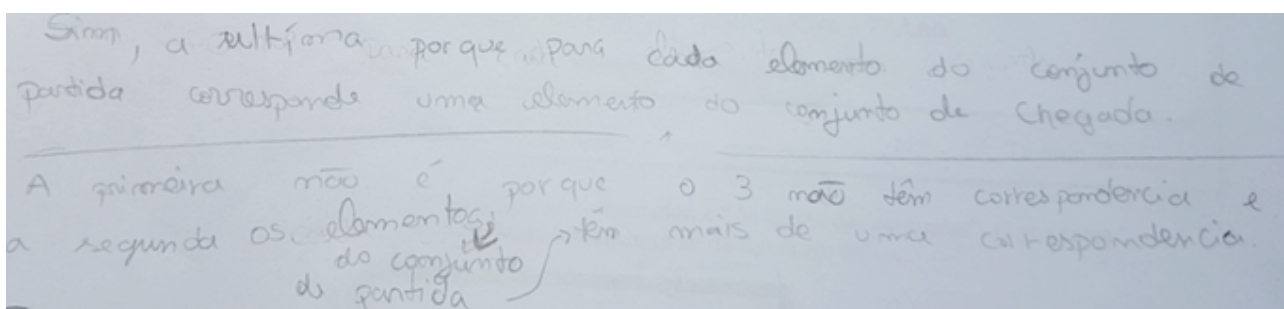 Sim, a ultima porque para cada elemento do conjunto de
partida corresponde uma elemento do conjunto de chegada.
A primeira não é porque o 3 não têm correspondencia e
a segunda os elementos têm mais de uma correspondencia.
do conjunto
de partida